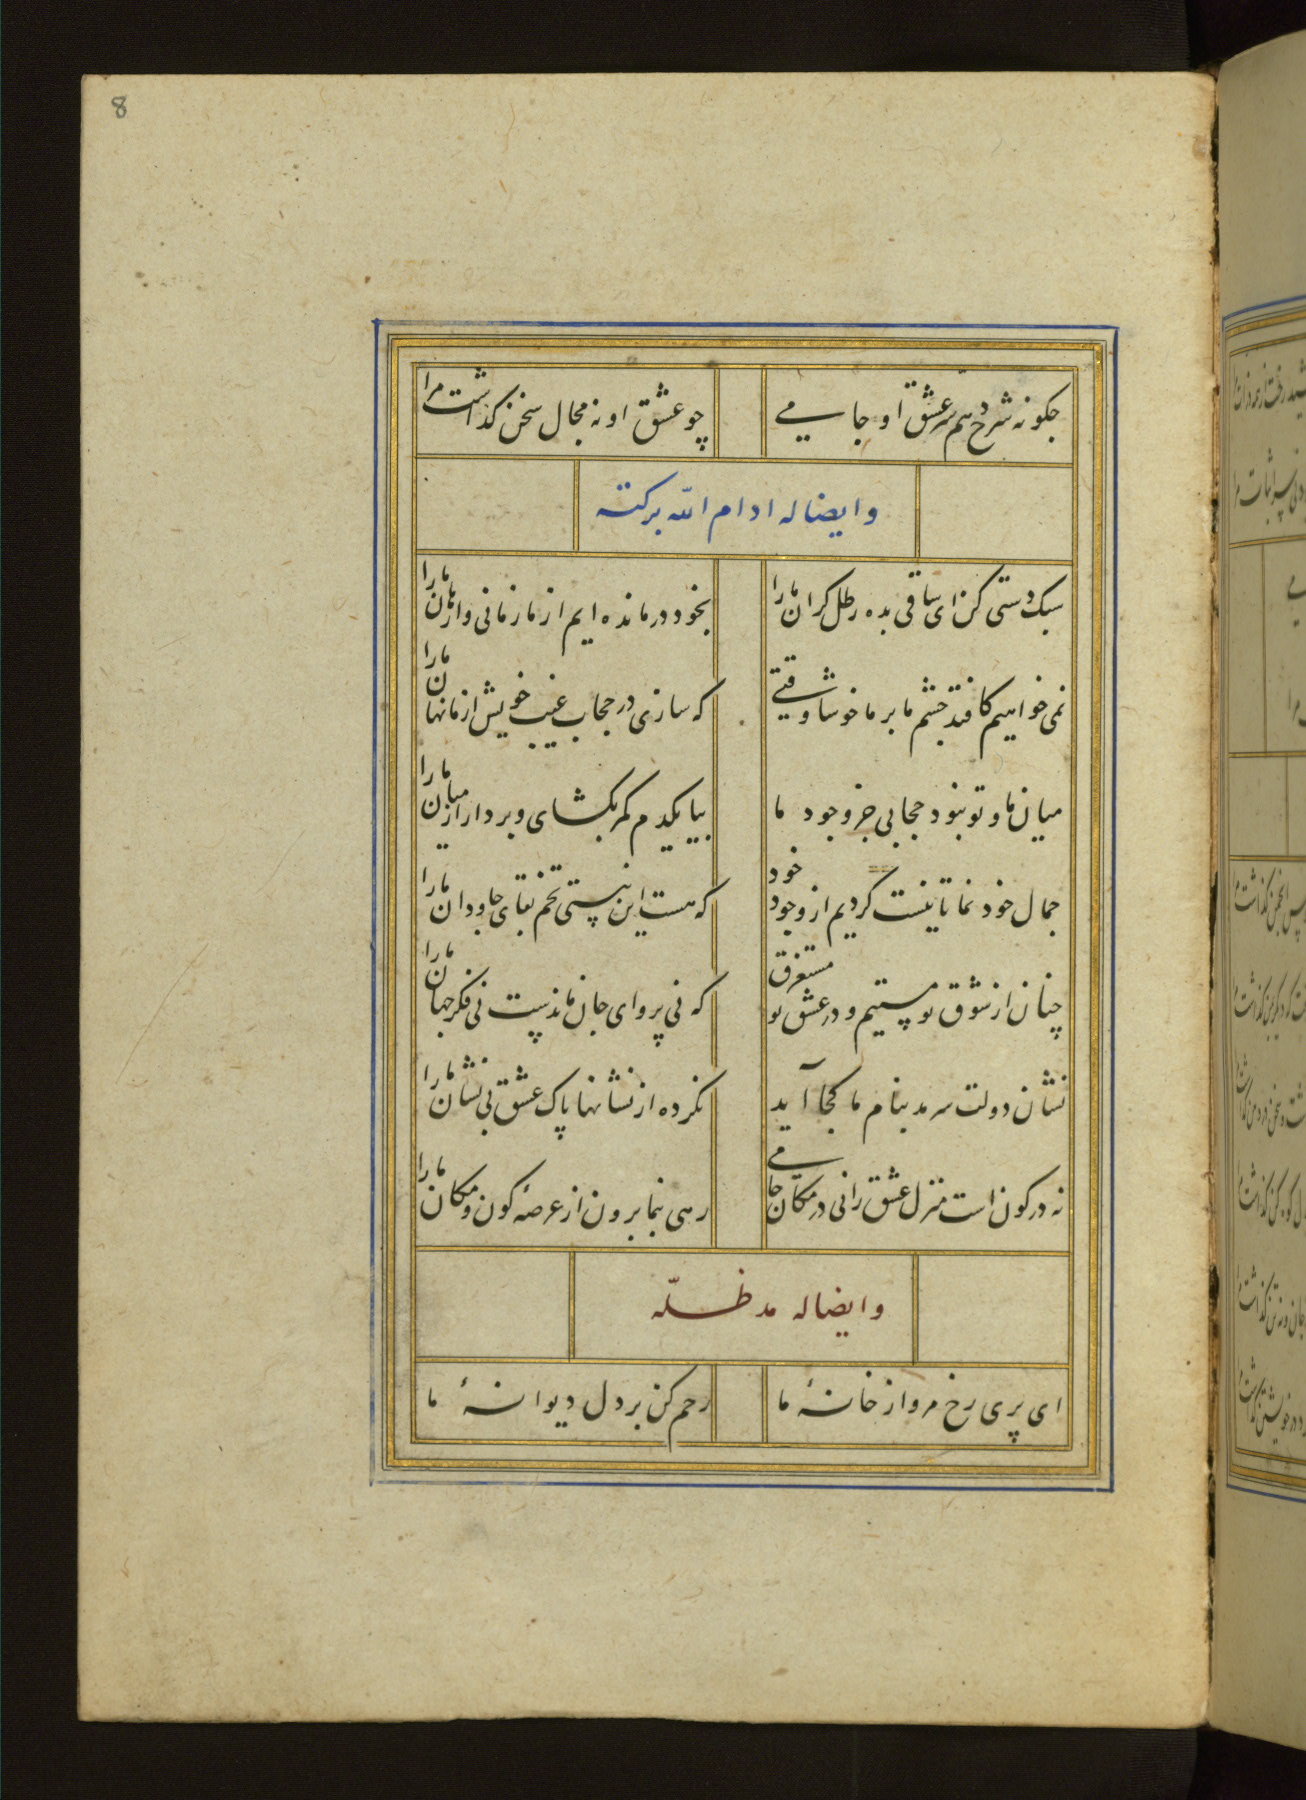 8
چگونه شرح دهم سر عشق او جامی
چو عشق او نه مجال سخن گذاشت مرا
وایضا له ادام الله برکته
سبک دستی کن ای ساقی بده رطل گران ما را
بخود درمانده ایم از ما زمانی وارهان ما را
نمی خواهیم کافتد چشم ما بر ما خوشا وقتی
که سازی در حجاب غیب خویش از ما نهان ما را
میان ما و تو نبود حجابی جز وجود ما
بیا یکدم کمر بگشای و بردار از میان ما را
جمال خود نما تا نیست گردیم از وجود خود
که هست این نیستی تخم بقای جاودان ما را
چنان از شوق تو مستیم و در عشق تو مستغرق
که نی پروای جان ماندست نی فکر جهان ما را
نشان دولت سرمد بنام ما کجا آید
نکرده از نشانها پاک عشق بی نشان ما را
نه در کون است منزل عشق را نی در مکان جامی
رهی بنما برون از عرصهٔ کون و مکان ما را
وایضا له مد ظله
ای پری رخ مرو از خانهٔ ما
رحم کن بر دل دیوانهٔ ما